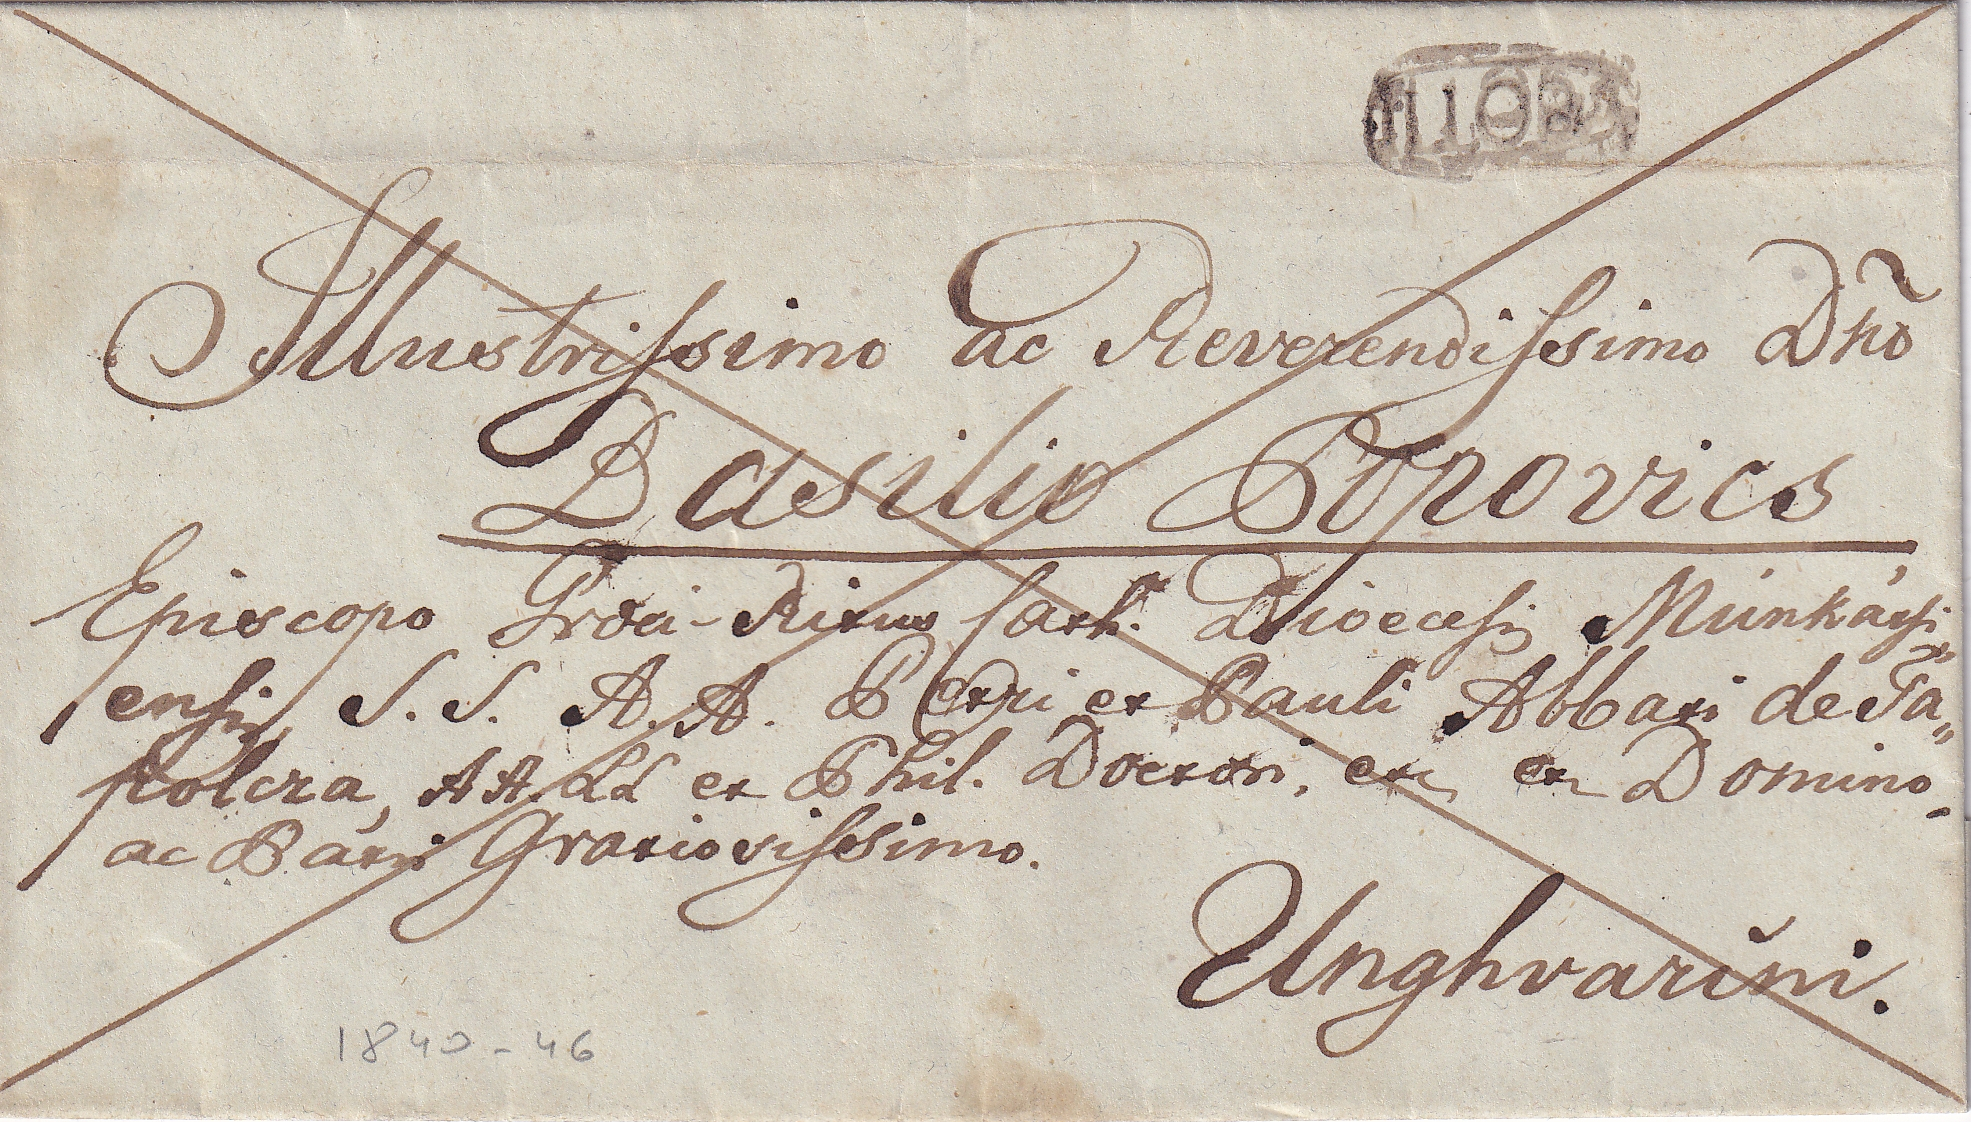 Illustrissimo ac Reverendissimo Dño
Basilio Popovics,
Episcopo Graeci-Ritus Cath. Dioecesis Múnkácsi„
ensis, S. S. A. A. Petri et Pauli Abbati de Ta„
polcza, AA. LL et Phil. Doctori, etc et Domino
ac Patri Gratiosissimo.
Unghvarini.
1840-46